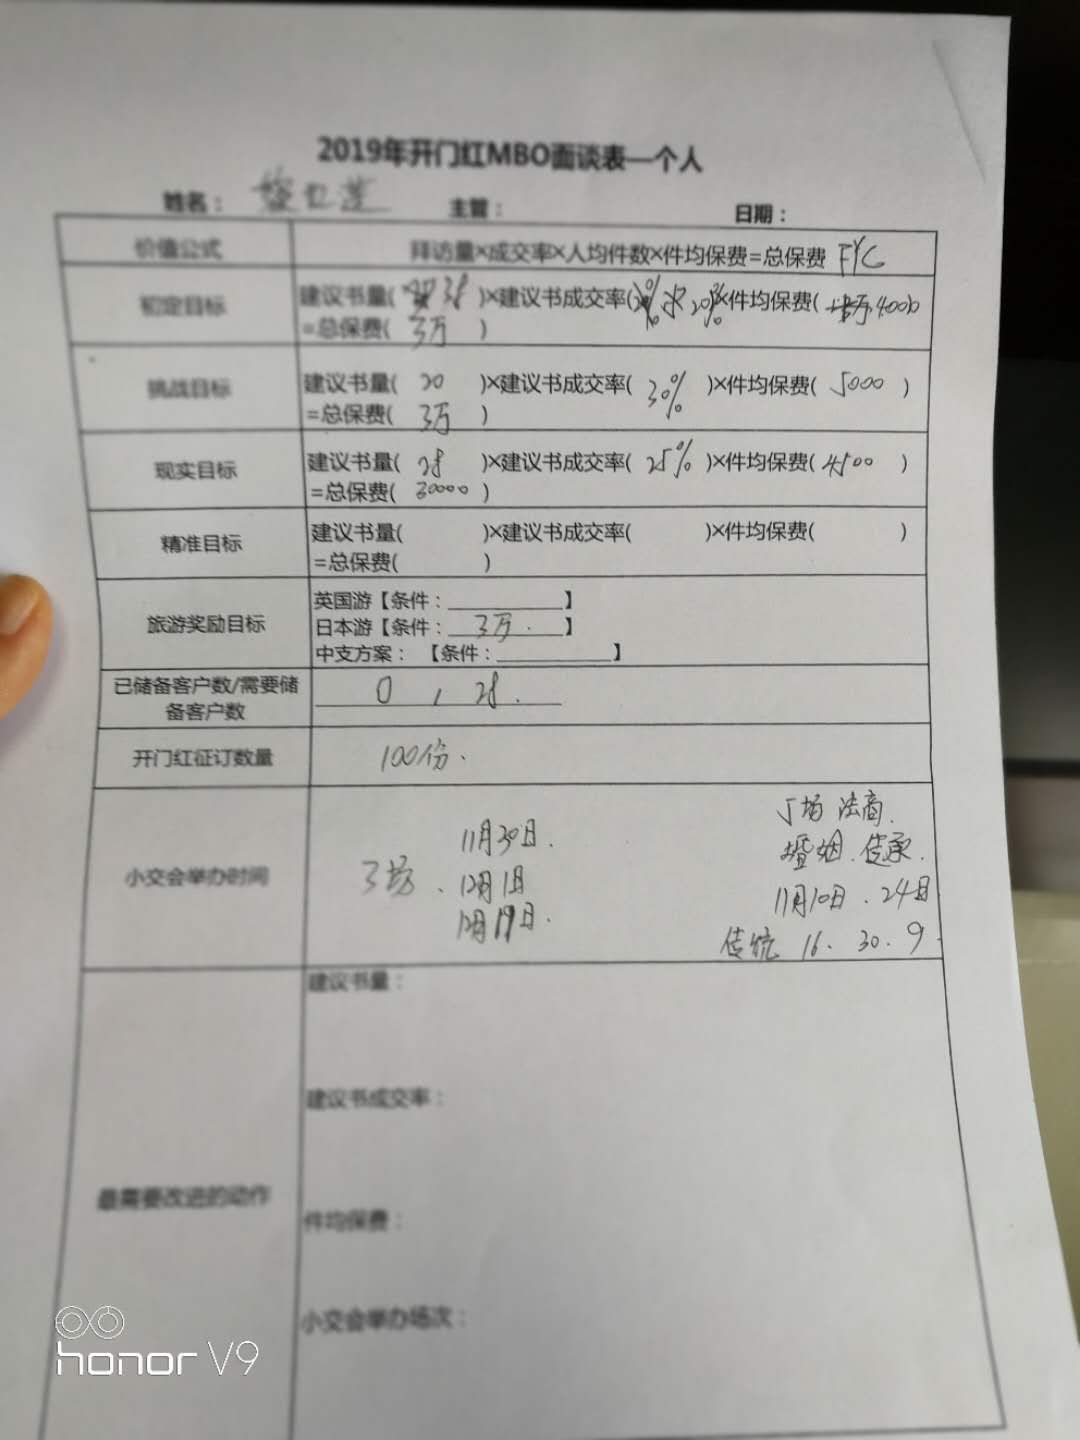 2019年开门红MBO面谈表—个人
姓名： 主管： 日期：
价值公式 拜访量×成交率×人均件数×件均保费=总保费 FYC
初定目标 建议书量( 38 )×建议书成交率( 20% )×件均保费( 4000
=总保费( 3万 )
挑战目标 建议书量( 20 )×建议书成交率( 30% )×件均保费( 5000 )
=总保费( 3万 )
现实目标 建议书量( 28 )×建议书成交率( 25% )×件均保费( 4500 )
=总保费( 30000 )
精准目标 建议书量( )×建议书成交率( )×件均保费( )
=总保费( )
旅游奖励目标 英国游【条件：____________】
日本游【条件：3万.】
中支方案： 【条件：____________】
已储备客户数/需要储备客户数 0 , 28.
开门红征订数量 100份.
小交会举办时间 3场、 11月30日.
12月1日
12月19日.
5场 法商.
婚姻.传承.
11月10日.24日
传统 16. 30. 9.
最需要改进的动作 建议书量：
建议书成交率：
件均保费：
小交会举办场次：
honor V9